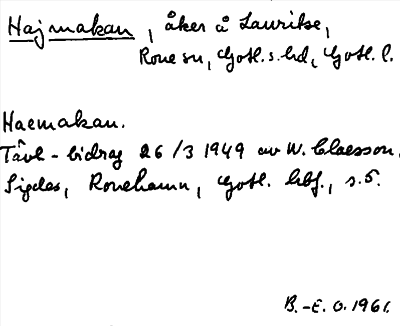 Hajmakan, åker å Lauritse,
Rone sn, Gotl. s. hd, Gotl. l.
Haemakan.
Tävl-bidrag 26/3 1949 av W. Claesson.
Sigdes, Ronehamn, Gotl. hbf., s. 5.
B.-E. O. 1961.